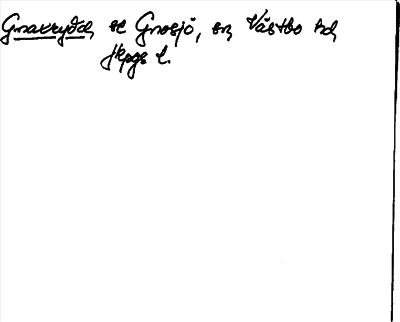 Gnavryd, se Gnosjö, sn, Västbo hd,
Jkpgs l.